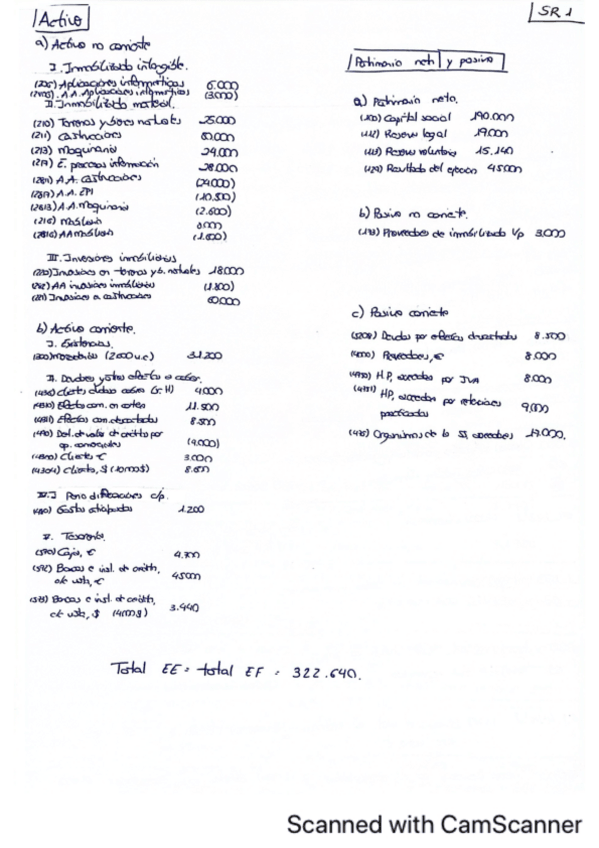 Activo
SR 1
a) Activo no corriente
I. Inmovilizado intangible.
(206) Aplicaciones informáticas 6.000
A.A. Aplicaciones informáticas (3.000)
II. Inmovilizado material.
(210) Terrenos y bienes naturales 25.000
(211) Construcciones 60.000
(213) Maquinaria 24.000
(217) E. procesos información 28.000
A.A. Construcciones (24.000)
A.A. EPI (10.500)
(2813) A.A. Maquinaria (2.600)
(216) Mobiliario 8.000
(2816) AA Mobiliario (1.600)
III. Inversiones inmobiliarias
(220) Inversiones en terrenos y b. naturales 18.000
(282) AA inversiones inmobiliarias
(221) Inversiones en construcciones 60.000
b) Activo corriente.
I. Existencias.
(300) Mercaderías (2000 u.c) 31.200
II. Deudores y otras efectos a cobrar.
(436) Clientes dudoso cobro 4.000
(4310) Efectos com. en cartera 11.500
(4311) Efectos com. descontados 8.500
(490) Det. de valor de créditos por
op. comerciales (4.000)
(4300) Clientes € 3.000
(4304) Clientes, $
IV. Periodificaciones c/p.
(480) Gastos anticipados 1.200
V. Tesorería.
(570) Caja, € 4.700
(572) Bancos e inst. de crédito,
c/c vista, € 45000
(573) Bancos e inst. de crédito,
c/c vista, $ (4000$) 3.440
Patrimonio neto y pasivo
a) Patrimonio neto.
(100) Capital social 190.000
(112) Reserva legal 19.000
(113) Reservas voluntarias 15.140
(129) Resultado del ejercicio 45000
b) Pasivo no corriente.
(173) Proveedores de inmovilizado l/p 3.000
c) Pasivo corriente
(5208) Deudas por efectos descontados 8.500
(4000) Proveedores, € 8.000
(4750) HP, acreedora por IVA 8.000
(4751) HP, acreedora por retenciones
practicadas 9.000
(476) Organismos de la SS, acreedores
Total EE = total EF = 322.640.
Scanned with CamScanner